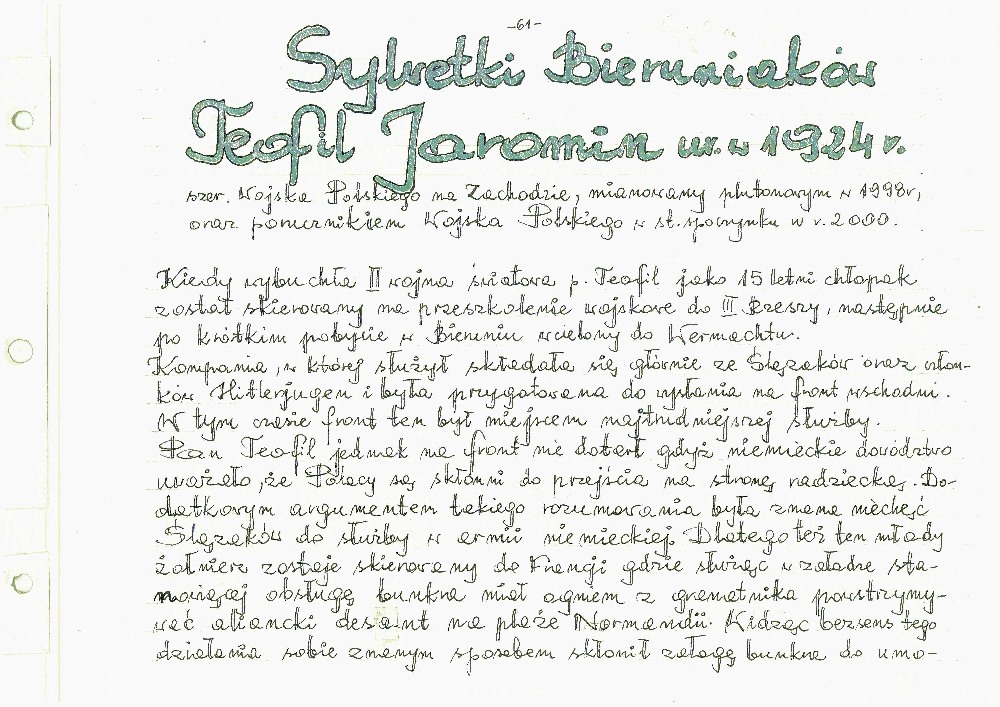 -61-
Sylwetki Bieruniaków
Teofil Jaromin ur. w 1924 r.
szer. Wojska Polskiego na Zachodzie, mianowany plutonowym w 1998r,
oraz porucznikiem Wojska Polskiego w st. spoczynku w r. 2000.
Kiedy wybuchła II wojna światowa p. Teofil jako 15 letni chłopak
został skierowany na przeszkolenie wojskowe do III Rzeszy, następnie
po krótkim pobycie w Bieruniu wcielony do Wermachtu.
Kompania, w której służył składała się głównie ze Ślązaków oraz człon-
ków Hitlerjugen i była przygotowana do wysłania na front wschodni.
W tym czasie front ten był miejscem najtrudniejszej służby.
Pan Teofil jednak na front nie dotarł gdyż niemieckie dowództwo
uważało, że Polacy są skłonni do przejścia na stronę radziecką. Do-
datkowym argumentem takiego rozumowania była znana niechęć
Ślązaków do służby w armii niemieckiej. Dlatego też ten młody
żołnierz zostaje skierowany do Francji gdzie służąc w załodze sta-
nowiącej obsługę bunkra miał ogniem z granatnika powstrzymy-
wać aliancki desant na plaże Normandii. Widząc bezsens tego
działania sobie znanym sposobem skłonił załogę bunkra do umo-